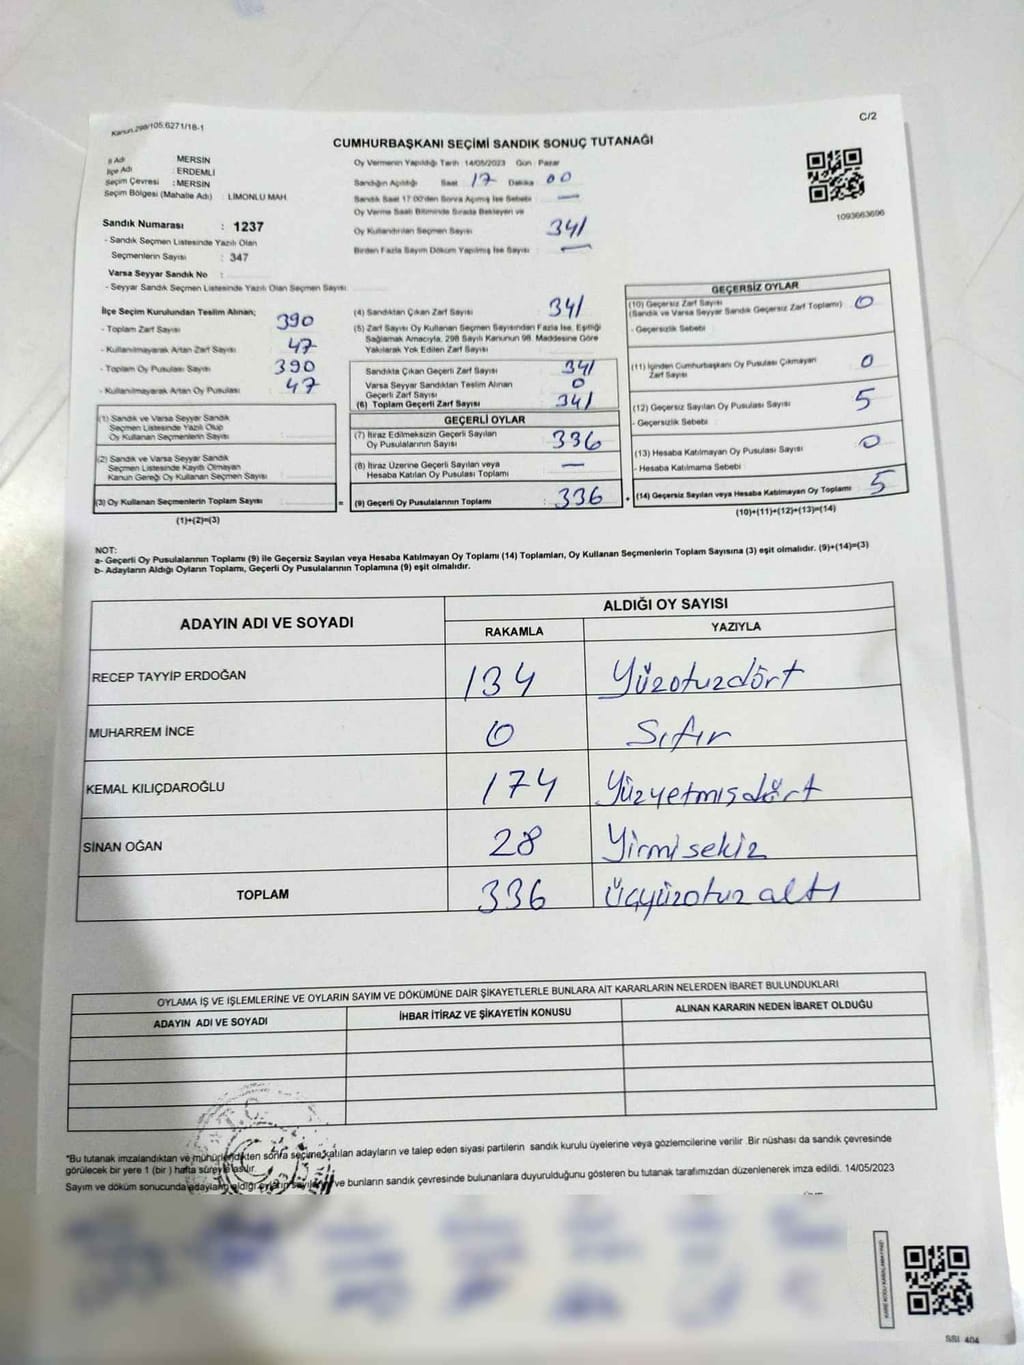 Kanun.298/105.6271/18-1
C/2
CUMHURBAŞKANI SEÇİMİ SANDIK SONUÇ TUTANAĞI
İl Adı MERSİN
İlçe Adı : ERDEMLİ
Seçim Çevresi : MERSİN
Seçim Bölgesi (Mahalle Adı) : LİMONLU MAH
Sandık Numarası : 1237
- Sandık Seçmen Listesinde Yazılı Olan
Seçmenlerin Sayısı : 347
Varsa Seyyar Sandık No :
- Seyyar Sandık Seçmen Listesinde Yazılı Olan Seçmen Sayısı
Oy Vermenin Yapıldığı Tarih 14/05/2023 Gün : Pazar
Sandığın Açıldığı Saat 17 Dakika 00
Sandık Saat 17:00'den Sonra Açılmış İse Sebebi —
Oy Verme Saati Bitiminde Sırada Bekleyen ve
Oy Kullandırılan Seçmen Sayısı 341
Birden Fazla Sayım Döküm Yapılmış İse Sayısı —
1093663696
İlçe Seçim Kurulundan Teslim Alınan;
- Toplam Zarf Sayısı 390
- Kullanılmayarak Artan Zarf Sayısı 47
- Toplam Oy Pusulası Sayısı 390
- Kullanılmayarak Artan Oy Pusulası 47
(1) Sandık ve Varsa Seyyar Sandık
Seçmen Listesinde Yazılı Olup
Oy Kullanan Seçmenlerin Sayısı
(2) Sandık ve Varsa Seyyar Sandık
Seçmen Listesinde Kayıtlı Olmayan
Kanun Gereği Oy Kullanan Seçmen Sayısı
(3) Oy Kullanan Seçmenlerin Toplam Sayısı =
(1)+(2)=(3)
(4) Sandıktan Çıkan Zarf Sayısı 341
(5) Zarf Sayısı Oy Kullanan Seçmen Sayısından Fazla İse, Eşitliği
Sağlamak Amacıyla, 298 Sayılı Kanunun 98. Maddesine Göre
Yakılarak Yok Edilen Zarf Sayısı
Sandıkta Çıkan Geçerli Zarf Sayısı 341
Varsa Seyyar Sandıktan Teslim Alınan
Geçerli Zarf Sayısı 0
(6) Toplam Geçerli Zarf Sayısı 341
GEÇERLİ OYLAR
(7) İtiraz Edilmeksizin Geçerli Sayılan
Oy Pusulalarının Sayısı 336
(8) İtiraz Üzerine Geçerli Sayılan veya
Hesaba Katılan Oy Pusulası Toplamı —
(9) Geçerli Oy Pusulalarının Toplamı : 336 +
GEÇERSİZ OYLAR
(10) Geçersiz Zarf Sayısı
(Sandık ve Varsa Seyyar Sandık Geçersiz Zarf Toplamı) 0
- Geçersizlik Sebebi
(11) İçinden Cumhurbaşkanı Oy Pusulası Çıkmayan
Zarf Sayısı 0
(12) Geçersiz Sayılan Oy Pusulası Sayısı 5
- Geçersizlik Sebebi
(13) Hesaba Katılmayan Oy Pusulası Sayısı 0
- Hesaba Katılmama Sebebi
(14) Geçersiz Sayılan veya Hesaba Katılmayan Oy Toplamı 5
(10)+(11)+(12)+(13)=(14)
NOT:
a- Geçerli Oy Pusulalarının Toplamı (9) ile Geçersiz Sayılan veya Hesaba Katılmayan Oy Toplamı (14) Toplamları, Oy Kullanan Seçmenlerin Toplam Sayısına (3) eşit olmalıdır. (9)+(14)=(3)
b- Adayların Aldığı Oyların Toplamı, Geçerli Oy Pusulalarının Toplamına (9) eşit olmalıdır.
ADAYIN ADI VE SOYADI
ALDIĞI OY SAYISI
RAKAMLA YAZIYLA
RECEP TAYYİP ERDOĞAN 134 Yüzotuzdört
MUHARREM İNCE 0 Sıfır
KEMAL KILIÇDAROĞLU 174 Yüzyetmişdört
SİNAN OĞAN 28 Yirmisekiz
TOPLAM 336 üçyüzotuz altı
OYLAMA İŞ VE İŞLEMLERİNE VE OYLARIN SAYIM VE DÖKÜMÜNE DAİR ŞİKAYETLERLE BUNLARA AİT KARARLARIN NELERDEN İBARET BULUNDUKLARI
ADAYIN ADI VE SOYADI İHBAR İTİRAZ VE ŞİKAYETİN KONUSU ALINAN KARARIN NEDEN İBARET OLDUĞU
*Bu tutanak imzalandıktan ve mühürlendikten sonra seçime katılan adayların ve talep eden siyasi partilerin sandık kurulu üyelerine veya gözlemcilerine verilir .Bir nüshası da sandık çevresinde
görülecek bir yere 1 (bir ) hafta süreyle asılır.
Sayım ve döküm sonucunda adayların aldığı oyların sayıları ve bunların sandık çevresinde bulunanlara duyurulduğunu gösteren bu tutanak tarafımızdan düzenlenerek imza edildi. 14/05/2023
SSI 404